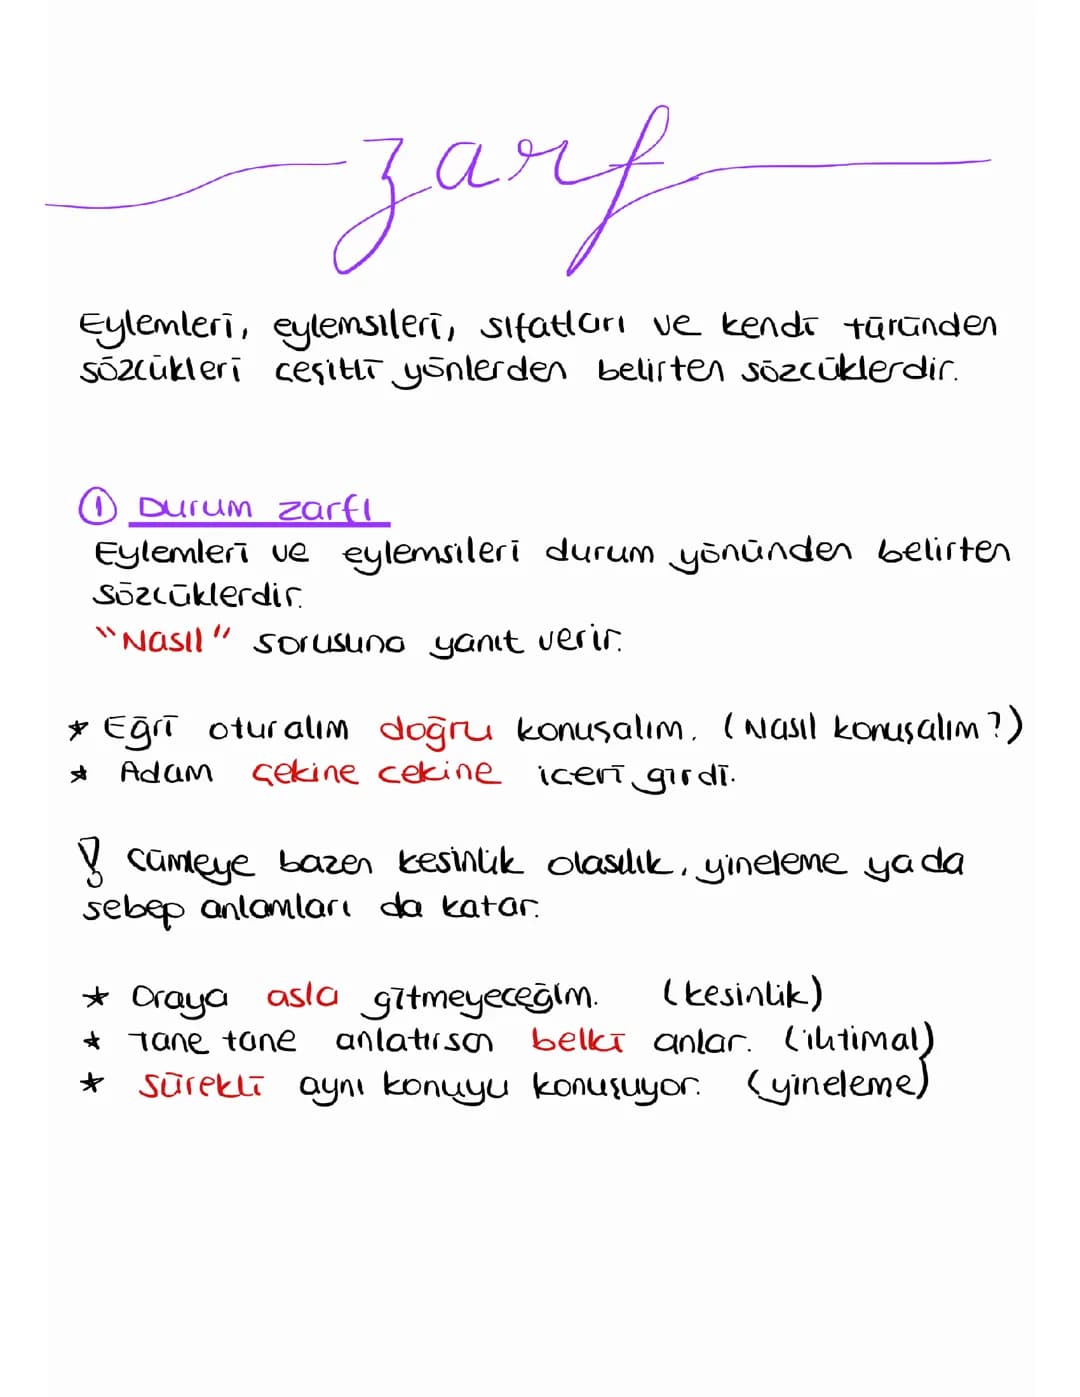 zarf
Eylemleri, eylemsileri, sıfatları ve kendi türünden
sözcükleri çeşitli yönlerden belirten sözcüklerdir.
① Durum zarfı
Eylemleri ve eylemsileri durum yönünden belirten
sözcüklerdir.
"Nasıl" sorusuna yanıt verir.
* Eğri oturalım doğru konuşalım. (Nasıl konuşalım?)
* Adam çekine cekine iceri girdi.
! Cümleye bazen kesinlik olasılık, yineleme ya da
sebep anlamları da katar.
* Oraya asla gitmeyeceğim. (kesinlik)
* Tane tane anlatırsan belki anlar. (ihtimal)
* Sürekli aynı konuyu konuşuyor. (yineleme)